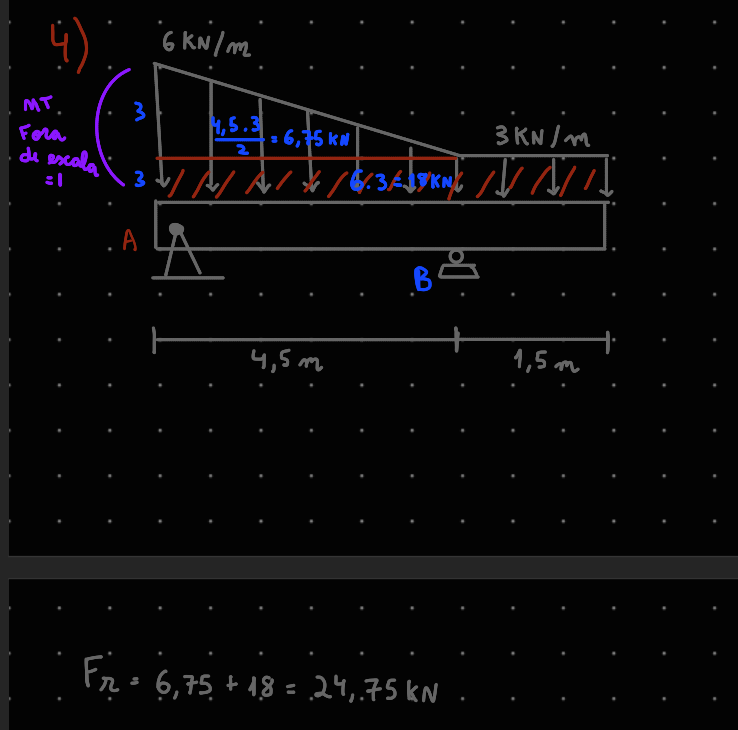 4)
6 KN/m
MT
Fora
de escala
=1
3
4,5.3
2
= 6,75 KN
3 KN/m
3
6.3=18KN
A
B
4,5 m
1,5 m
Fr = 6,75 + 18 = 24,75 KN